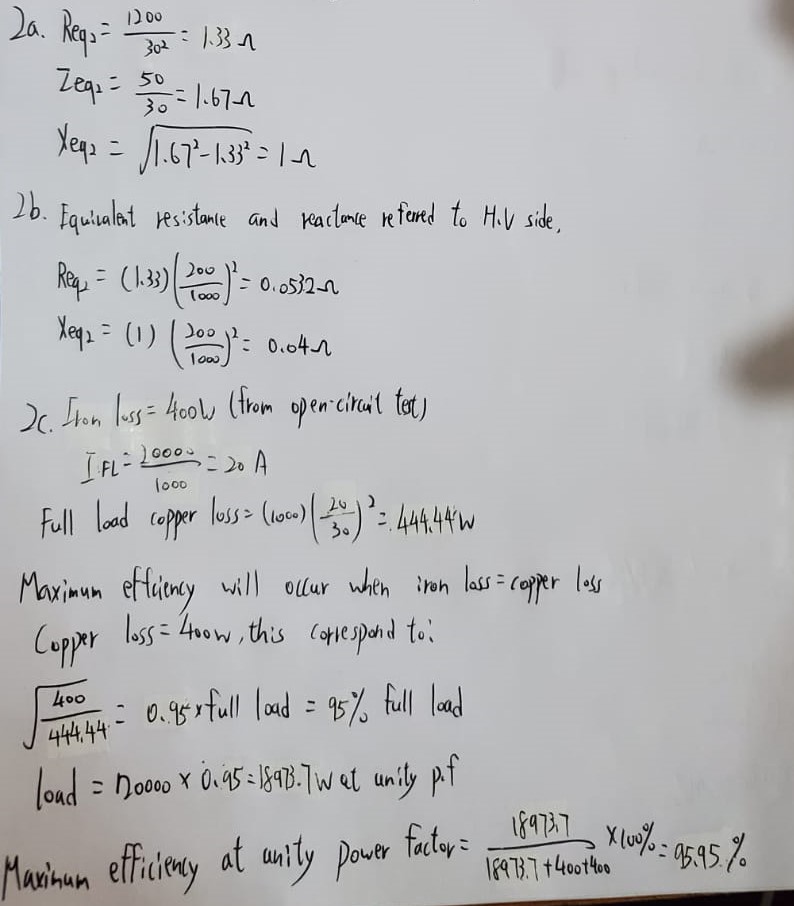 2a. Req₂ = 1200/30² = 1.33 Ω
Zeq₂ = 50/30 = 1.67 Ω
Xeq₂ = √(1.67² - 1.33²) = 1 Ω
2b. Equivalent resistance and reactance referred to H.V side,
Req₂ = (1.33)(200/1000)² = 0.0532 Ω
Xeq₂ = (1)(200/1000)² = 0.04 Ω
2c. Iron loss = 400W (from open-circuit test)
I FL = 20000/1000 = 20 A
Full load copper loss = (1000)(20/30)² = 444.44 W
Maximum efficiency will occur when iron loss = copper loss
Copper loss = 400w, this correspond to:
√(400/444.44) = 0.95 × full load = 95% full load
load = 20000 × 0.95 = 18973.7 W at unity p.f
Maximum efficiency at unity power factor = 18973.7/(18973.7 + 400 + 400) × 100% = 95.95 %